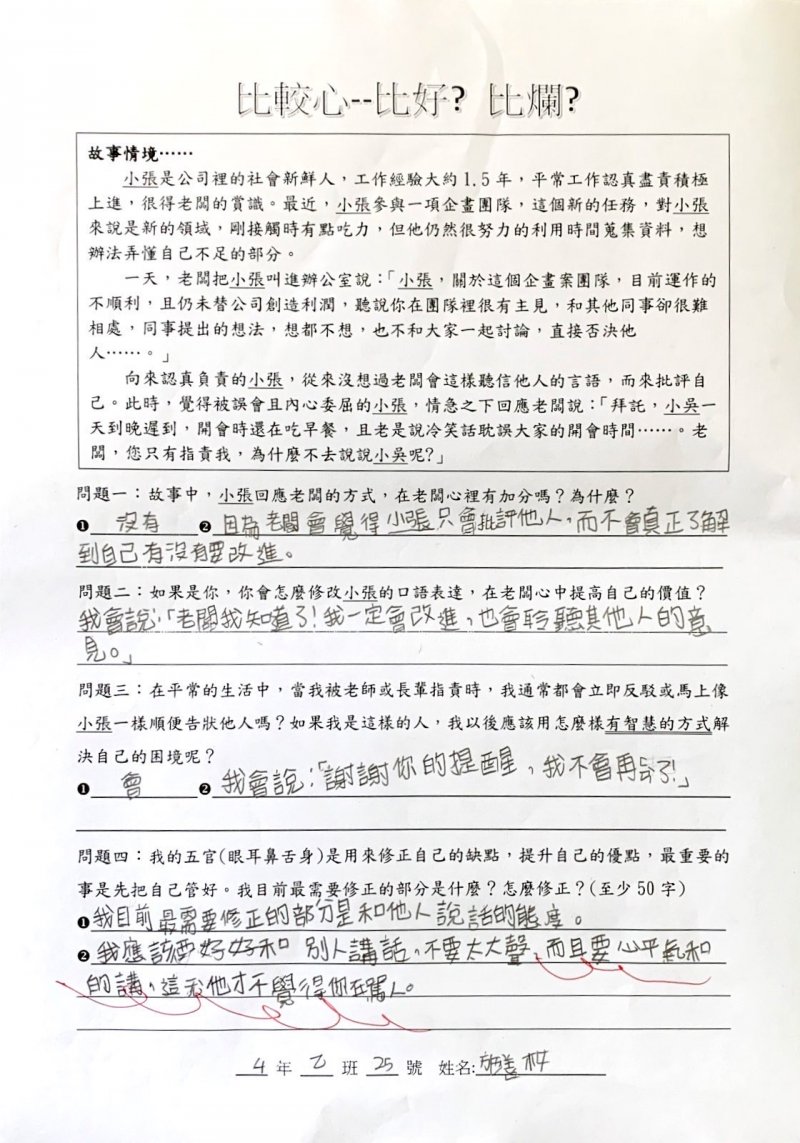 比較心--比好? 比爛?
故事情境……
小張是公司裡的社會新鮮人，工作經驗大約 1.5 年，平常工作認真盡責積極
上進，很得老闆的賞識。最近，小張參與一項企畫團隊，這個新的任務，對小張
來說是新的領域，剛接觸時有點吃力，但他仍然很努力的利用時間蒐集資料，想
辦法弄懂自己不足的部分。
一天，老闆把小張叫進辦公室說：「小張，關於這個企畫案團隊，目前運作的
不順利，且仍未替公司創造利潤，聽說你在團隊裡很有主見，和其他同事卻很難
相處，同事提出的想法，想都不想，也不和大家一起討論，直接否決他
人……。」
向來認真負責的小張，從來沒想過老闆會這樣聽信他人的言語，而來批評自
己。此時，覺得被誤會且內心委屈的小張，情急之下回應老闆說：「拜託，小吳一
天到晚遲到，開會時還在吃早餐，且老是說冷笑話耽誤大家的開會時間……。老
闆，您只有指責我，為什麼不去說說小吳呢?」
問題一：故事中，小張回應老闆的方式，在老闆心裡有加分嗎？為什麼？
❶ 沒有 ❷ 因為老闆會覺得小張只會批評他人，而不會真正了解
到自己有沒有要改進。
問題二：如果是你，你會怎麼修改小張的口語表達，在老闆心中提高自己的價值？
我會說：「老闆我知道了！我一定會改進，也會聆聽其他人的意
見。」
問題三：在平常的生活中，當我被老師或長輩指責時，我通常都會立即反駁或馬上像
小張一樣順便告狀他人嗎？如果我是這樣的人，我以後應該用怎麼樣有智慧的方式解
決自己的困境呢？
❶ 會 ❷ 我會說：「謝謝你的提醒，我不會再了！」
問題四：我的五官(眼耳鼻舌身)是用來修正自己的缺點，提升自己的優點，最重要的
事是先把自己管好。我目前最需要修正的部分是什麼？怎麼修正？(至少 50 字)
❶我目前最需要修正的部分是和他人說話的態度。
❷我應該要好好和別人講話，不要太大聲，而且要心平氣和
的講，這樣他才不覺得你在罵人。
4 年 乙 班 25 號 姓名: